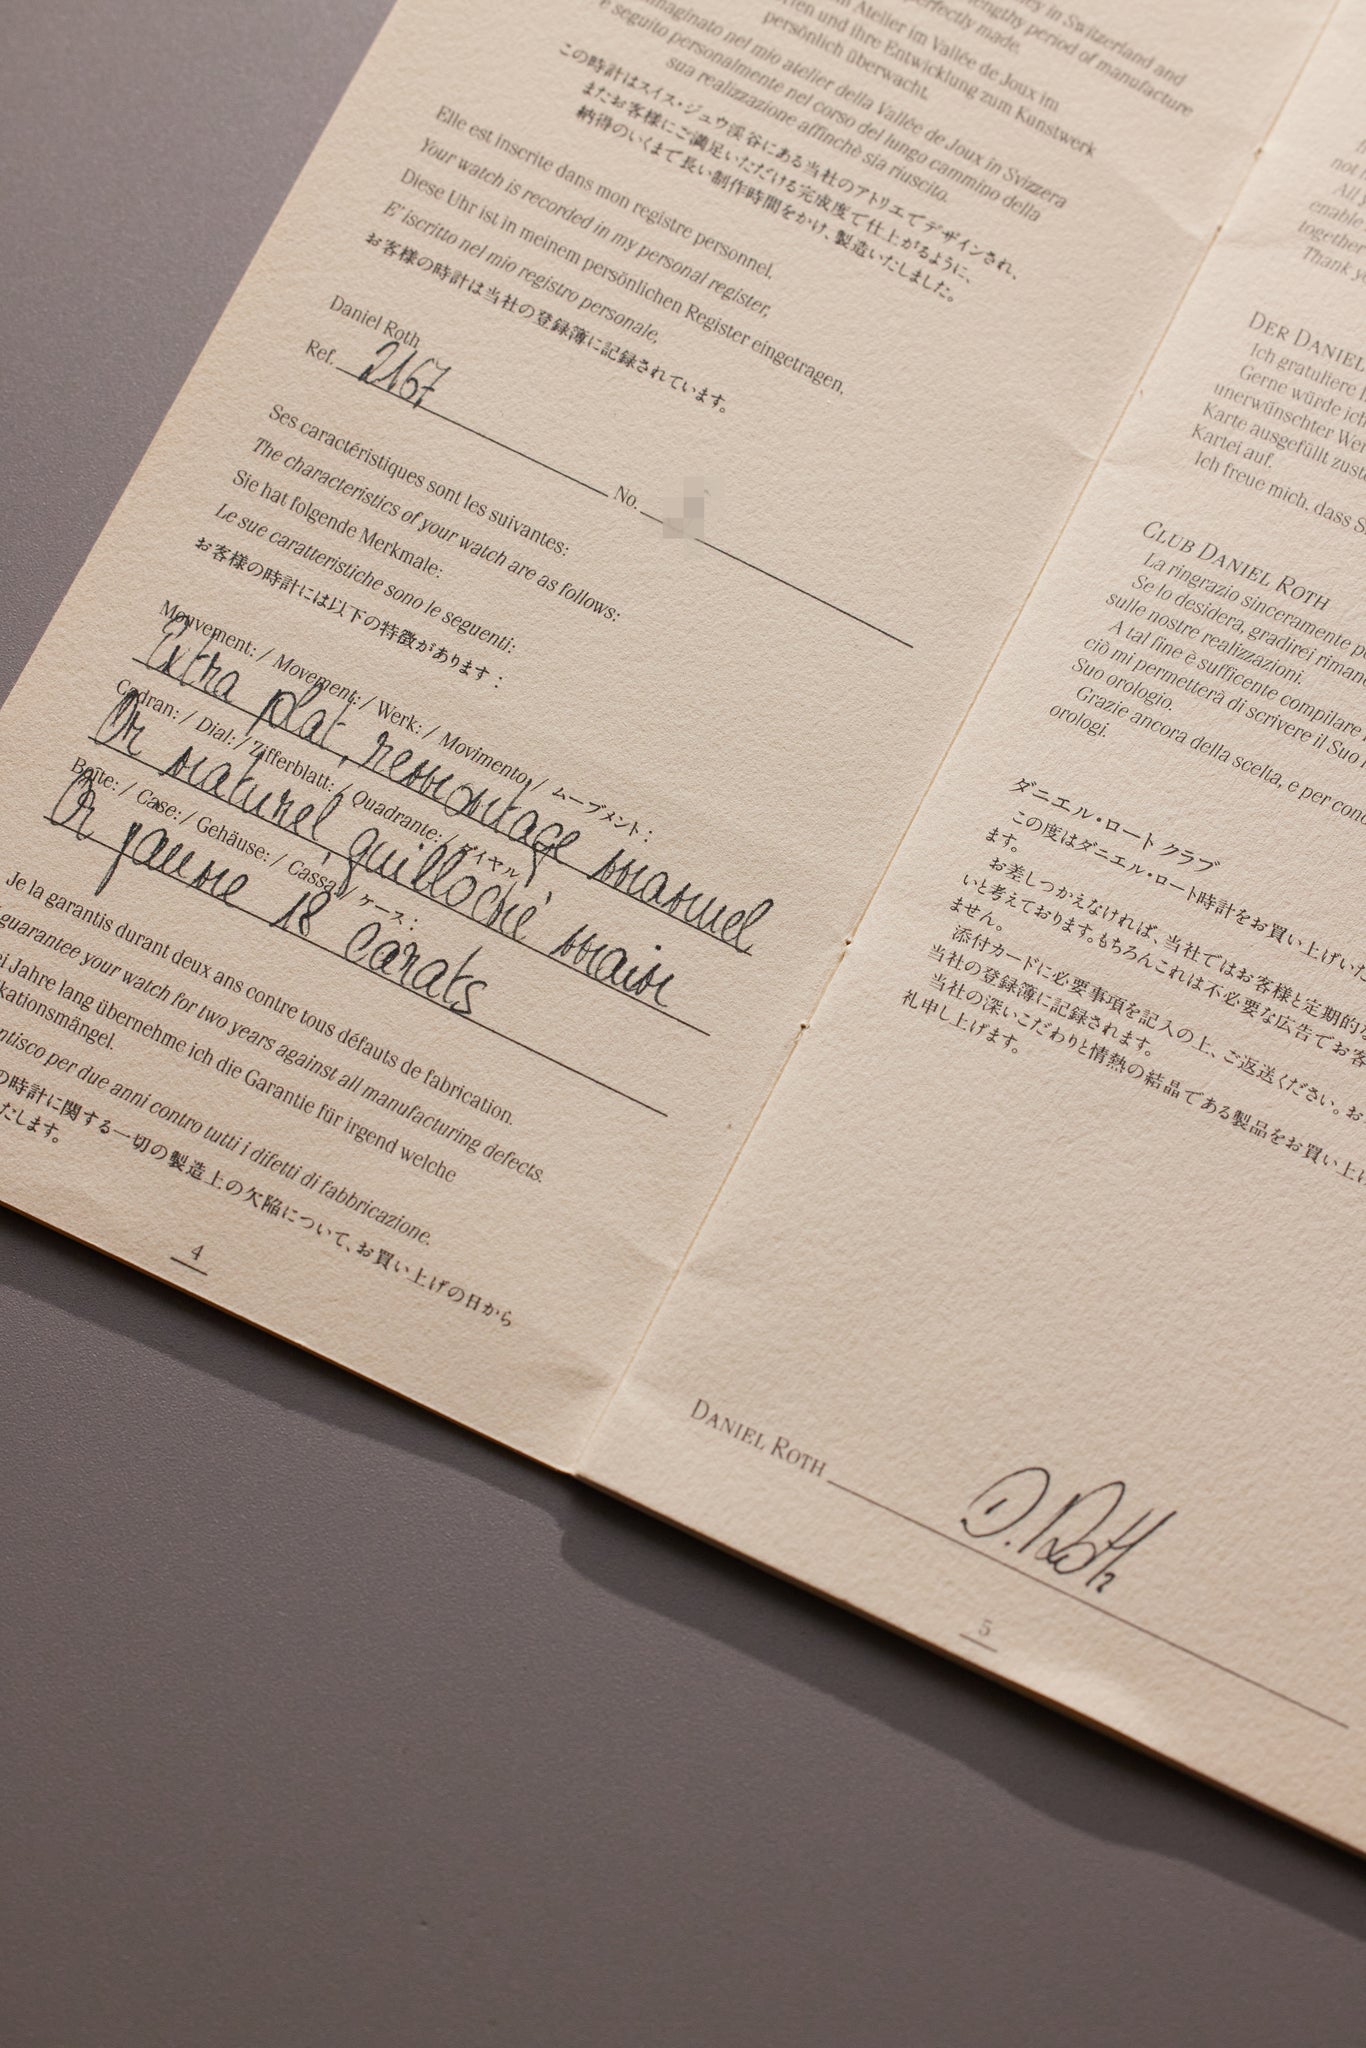 cy in Switzerland and
lengthy period of manufacture
perfectly made.
Atelier im Vallée de Joux im
und ihre Entwicklung zum Kunstwerk
persönlich überwacht.
immaginato nel mio atelier della Vallée de Joux in Svizzera
e seguito personalmente nel corso del lungo cammino della
sua realizzazione affinchè sia riuscito.
この時計はスイス・ジュウ渓谷にある当社のアトリエでデザインされ、
またお客様にご満足いただける完成度で仕上がるように、
納得のいくまで長い制作時間をかけ、製造いたしました。
Elle est inscrite dans mon registre personnel,
Your watch is recorded in my personal register,
Diese Uhr ist in meinem persönlichen Register eingetragen,
E' iscritto nel mio registro personale,
お客様の時計は当社の登録簿に記録されています。
Daniel Roth
Ref. 2167 No.
Ses caractéristiques sont les suivantes:
The characteristics of your watch are as follows:
Sie hat folgende Merkmale:
Le sue caratteristiche sono le seguenti:
お客様の時計には以下の特徴があります：
Mouvement: / Movement: / Werk: / Movimento / ムーブメント：
Extra plat, remontage manuel
Cadran: / Dial: / Zifferblatt: / Quadrante: / ダイヤル：
Or naturel guilloché main
Boîte: / Case: / Gehäuse: / Cassa: / ケース：
Or jaune 18 carats
Je la garantis durant deux ans contre tous défauts de fabrication.
guarantee your watch for two years against all manufacturing defects.
ei Jahre lang übernehme ich die Garantie für irgend welche
kationsmängel.
ntisco per due anni contro tutti i difetti di fabbricazione.
の時計に関する一切の製造上の欠陥について、お買い上げの日から
たします。
4
not
All
enable
together
Thank
DER DANIEL
Ich gratuliere
Gerne würde ich
unerwünschter
Karte ausgefüllt
Kartei auf.
Ich freue mich, dass
CLUB DANIEL ROTH
La ringrazio sinceramente
Se lo desidera, gradirei
sulle nostre realizzazioni.
A tal fine è sufficente compilare
ciò mi permetterà di scrivere il Suo
Suo orologio.
Grazie ancora della scelta, e per
orologi.
ダニエル・ロート クラブ
この度はダニエル・ロート時計をお買い上げいた
ます。
お差しつかえなければ、当社ではお客様と定期的な
いと考えております。もちろんこれは不必要な広告でお客
ません。
添付カードに必要事項を記入の上、ご返送ください。お
当社の登録簿に記録されます。
当社の深いこだわりと情熱の結晶である製品をお買い上げ
礼申し上げます。
DANIEL ROTH D. Roth
5